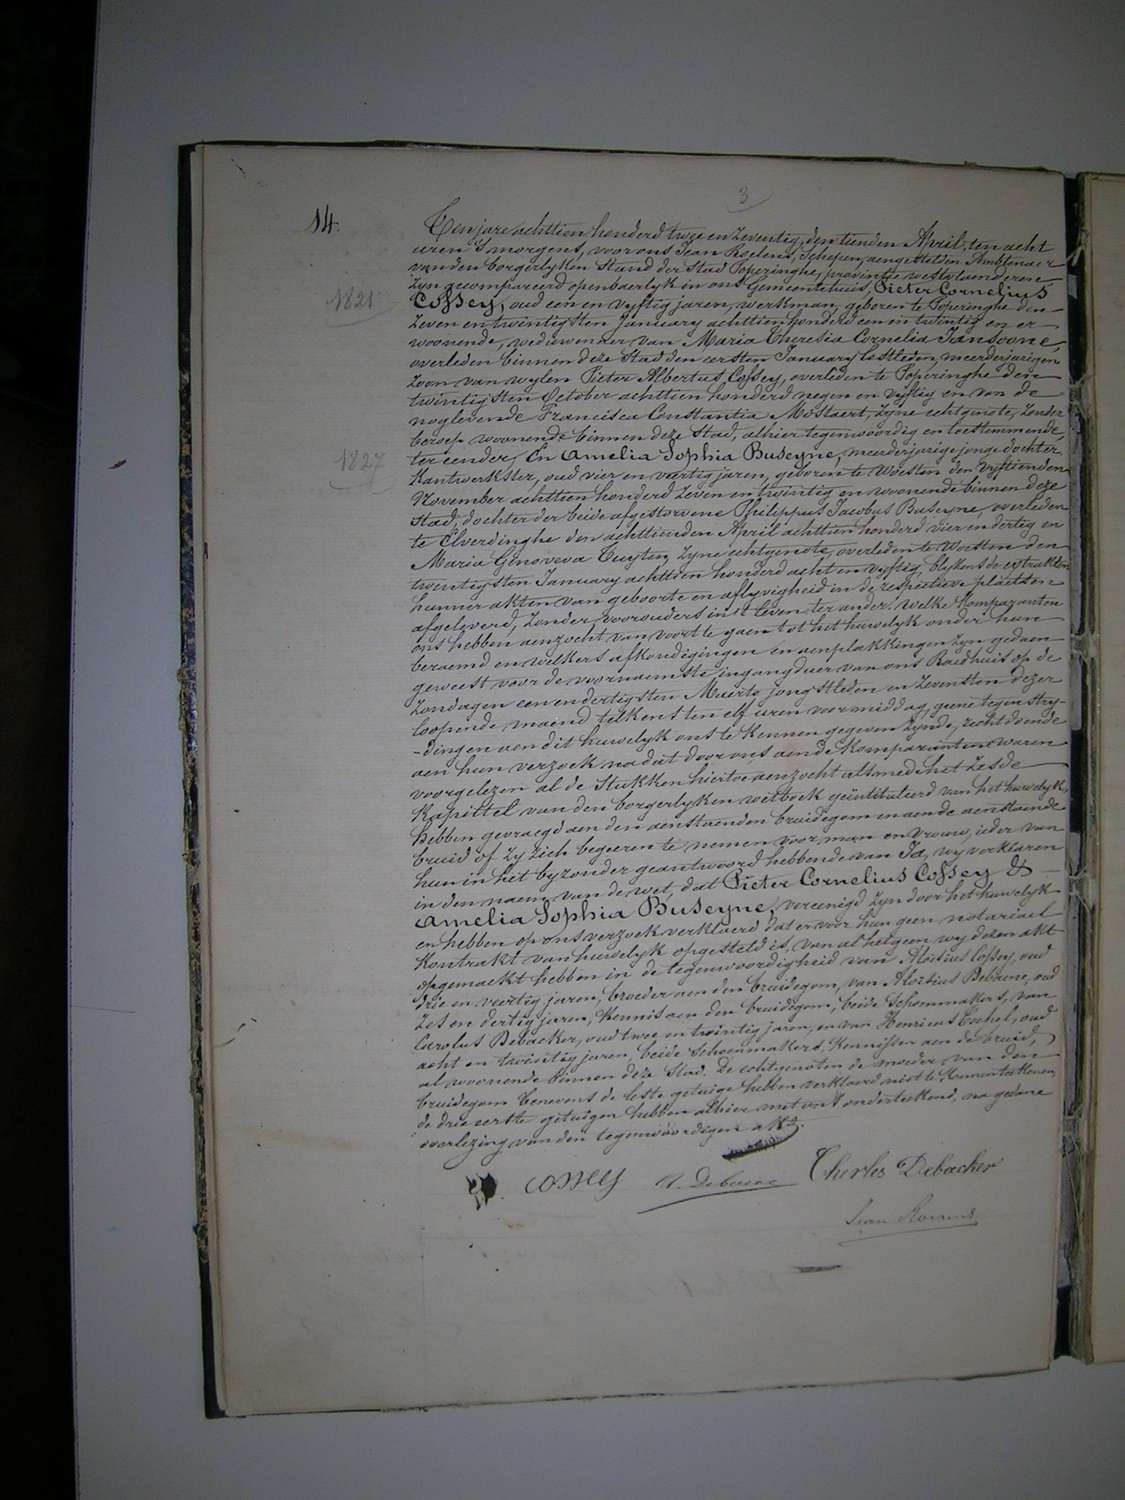 3
14.
Ten jare achttien honderd twee en zeventig, den tienden April, ten acht
uren 's morgens, voor ons Jean Roelens, Schepen, aengestelden Ambtenaer
van den borgerlyken Stand der Stad Poperinghe, provintie westvlaenderen
zyn gecompareerd openbaerlyk in ons Gemeentehuis, Pieter Cornelius
1821
Cossey, oud een en vyftig jaren, werkman, geboren te Poperinghe den
zeven en twintigsten January achttien honderd een en twintig en er
woonende, weduwenaer van Maria Theresia Cornelia Jansoone,
overleden binnen deze stad den eersten January lestleden, meerderjarigen
zoon van wylen Pieter Albertus Cossey, overleden te Poperinghe den
twintigsten October achttien honderd negen en vyftig en van de
noglevende Francisca Constantia Mostaert, zyne echtgenote, zonder
beroep woonende binnen deze Stad, alhier tegenwoordig en toestemmende,
ter eender, En Amelia Sophia Buseyne, meerderjarige jonge dochter,
1827
kantwerkster, oud vier en veertig jaren, geboren te Woesten den vyftienden
November achttien honderd zeven en twintig en woonende binnen deze
stad, dochter der beide afgestorvene Philippus Jacobus Buseyne, overleden
te Elverdinghe den achttienden April achttien honderd vier en dertig en
Maria Genoveva Cuyten, zyne echtgenote, overleden te Woesten den
twintigsten January achttien honderd acht en vyftig, blykens de extrakten
hunner akten van geboorte en aflyvigheid in de respective plaetsen
afgeleverd, zonder voorouders in 't leven, ter ander. Welke komparanten
ons hebben aenzocht van voort te gaen tot het huwelyk onder hun
beraemd en welkers afkondigingen en aenplakkingen zyn gedaen
geweest voor de voornaemste ingangdeur van ons Raedhuis op de
zondagen een en dertigsten Maerte jongstleden en zevensten dezer
loopende maend telkens ten elf uren voormiddag, geene tegenstry-
-dingen aen dit huwelyk ons te kennen gegeven zynde, recht doende
aen hun verzoek nadat door ons aen de komparanten waren
voorgelezen al de stukken hiertoe aenzocht alsmede het zesde
kapittel van den borgerlyken wetboek geïntituleerd van het huwelyk,
hebben gevraegd aen den aenstaenden bruidegom en aen de aenstaende
bruid of zy zich begeeren te nemen voor man en vrouw, ieder van
hun in het byzonder geantwoord hebbende van Ja, wy verklaren
in den naem van de wet, dat Pieter Cornelius Cossey &
Amelia Sophia Buseyne, vereenigd zyn door het huwelyk
en hebben op ons verzoek verklaerd dat er voor hun geen notariael
kontrakt van huwelyk opgesteld is, van al hetgeen wy dezen akt
opgemaekt hebben in de tegenwoordigheid van Aloisius Cossey, oud
drie en veertig jaren, broeder aen den bruidegom, van Aloisius Debaene, oud
zes en dertig jaren, kennis aen den bruidegom, beide Schoenmakers, van
Carolus Debacker, oud twee en twintig jaren, en van Henricus Cochel, oud
acht en twintig jaren, beide Schoenmakers, Kennissen aen de bruid,
al woonende binnen deze Stad. De echtgenoten de moeder van den
bruidegom benevens de leste getuige hebben verklaerd niet te kunnen teekenen,
de drie eerste getuigen hebben alhier met ons onderteekend, na gedane
overlezing van den tegenwoordigen akt.
Cossey A. Debaene Charles Debacker
Jean Roelens